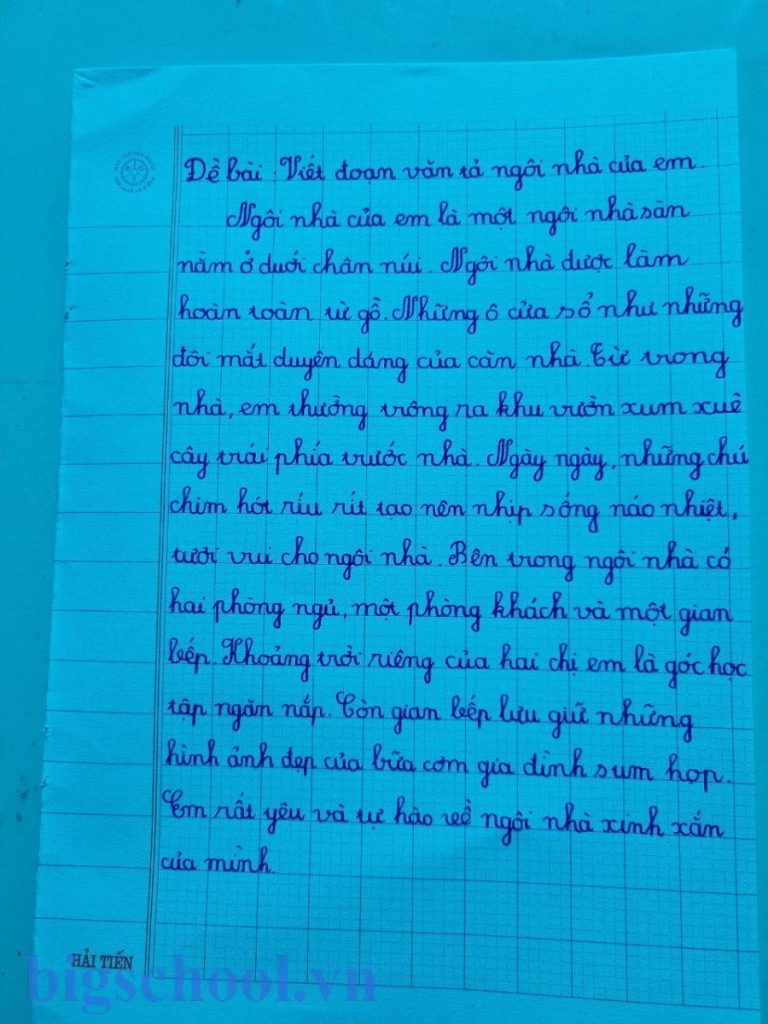 Đề bài: Viết đoạn văn tả ngôi nhà của em.
Ngôi nhà của em là một ngôi nhà sàn
nằm ở dưới chân núi. Ngôi nhà được làm
hoàn toàn từ gỗ. Những ô cửa sổ như những
đôi mắt duyên dáng của căn nhà. Từ trong
nhà, em thường trông ra khu vườn xum xuê
cây trái phía trước nhà. Ngày ngày, những chú
chim hót ríu rít tạo nên nhịp sống náo nhiệt,
tươi vui cho ngôi nhà. Bên trong ngôi nhà có
hai phòng ngủ, một phòng khách và một gian
bếp. Khoảng trời riêng của hai chị em là góc học
tập ngăn nắp. Còn gian bếp lưu giữ những
hình ảnh đẹp của bữa cơm gia đình sum họp.
Em rất yêu và tự hào về ngôi nhà xinh xắn
của mình.
HẢI TIẾN
bigschool.vn